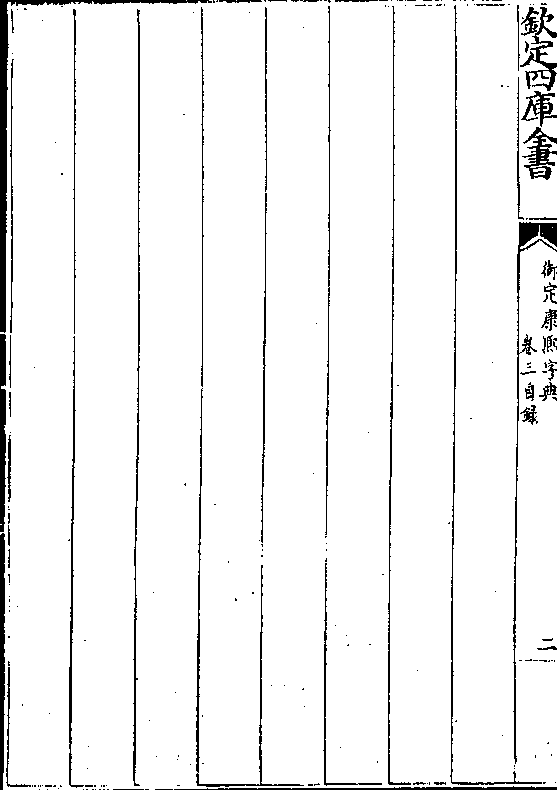 欽定四庫全書
御定康熙字典
卷三目録
二